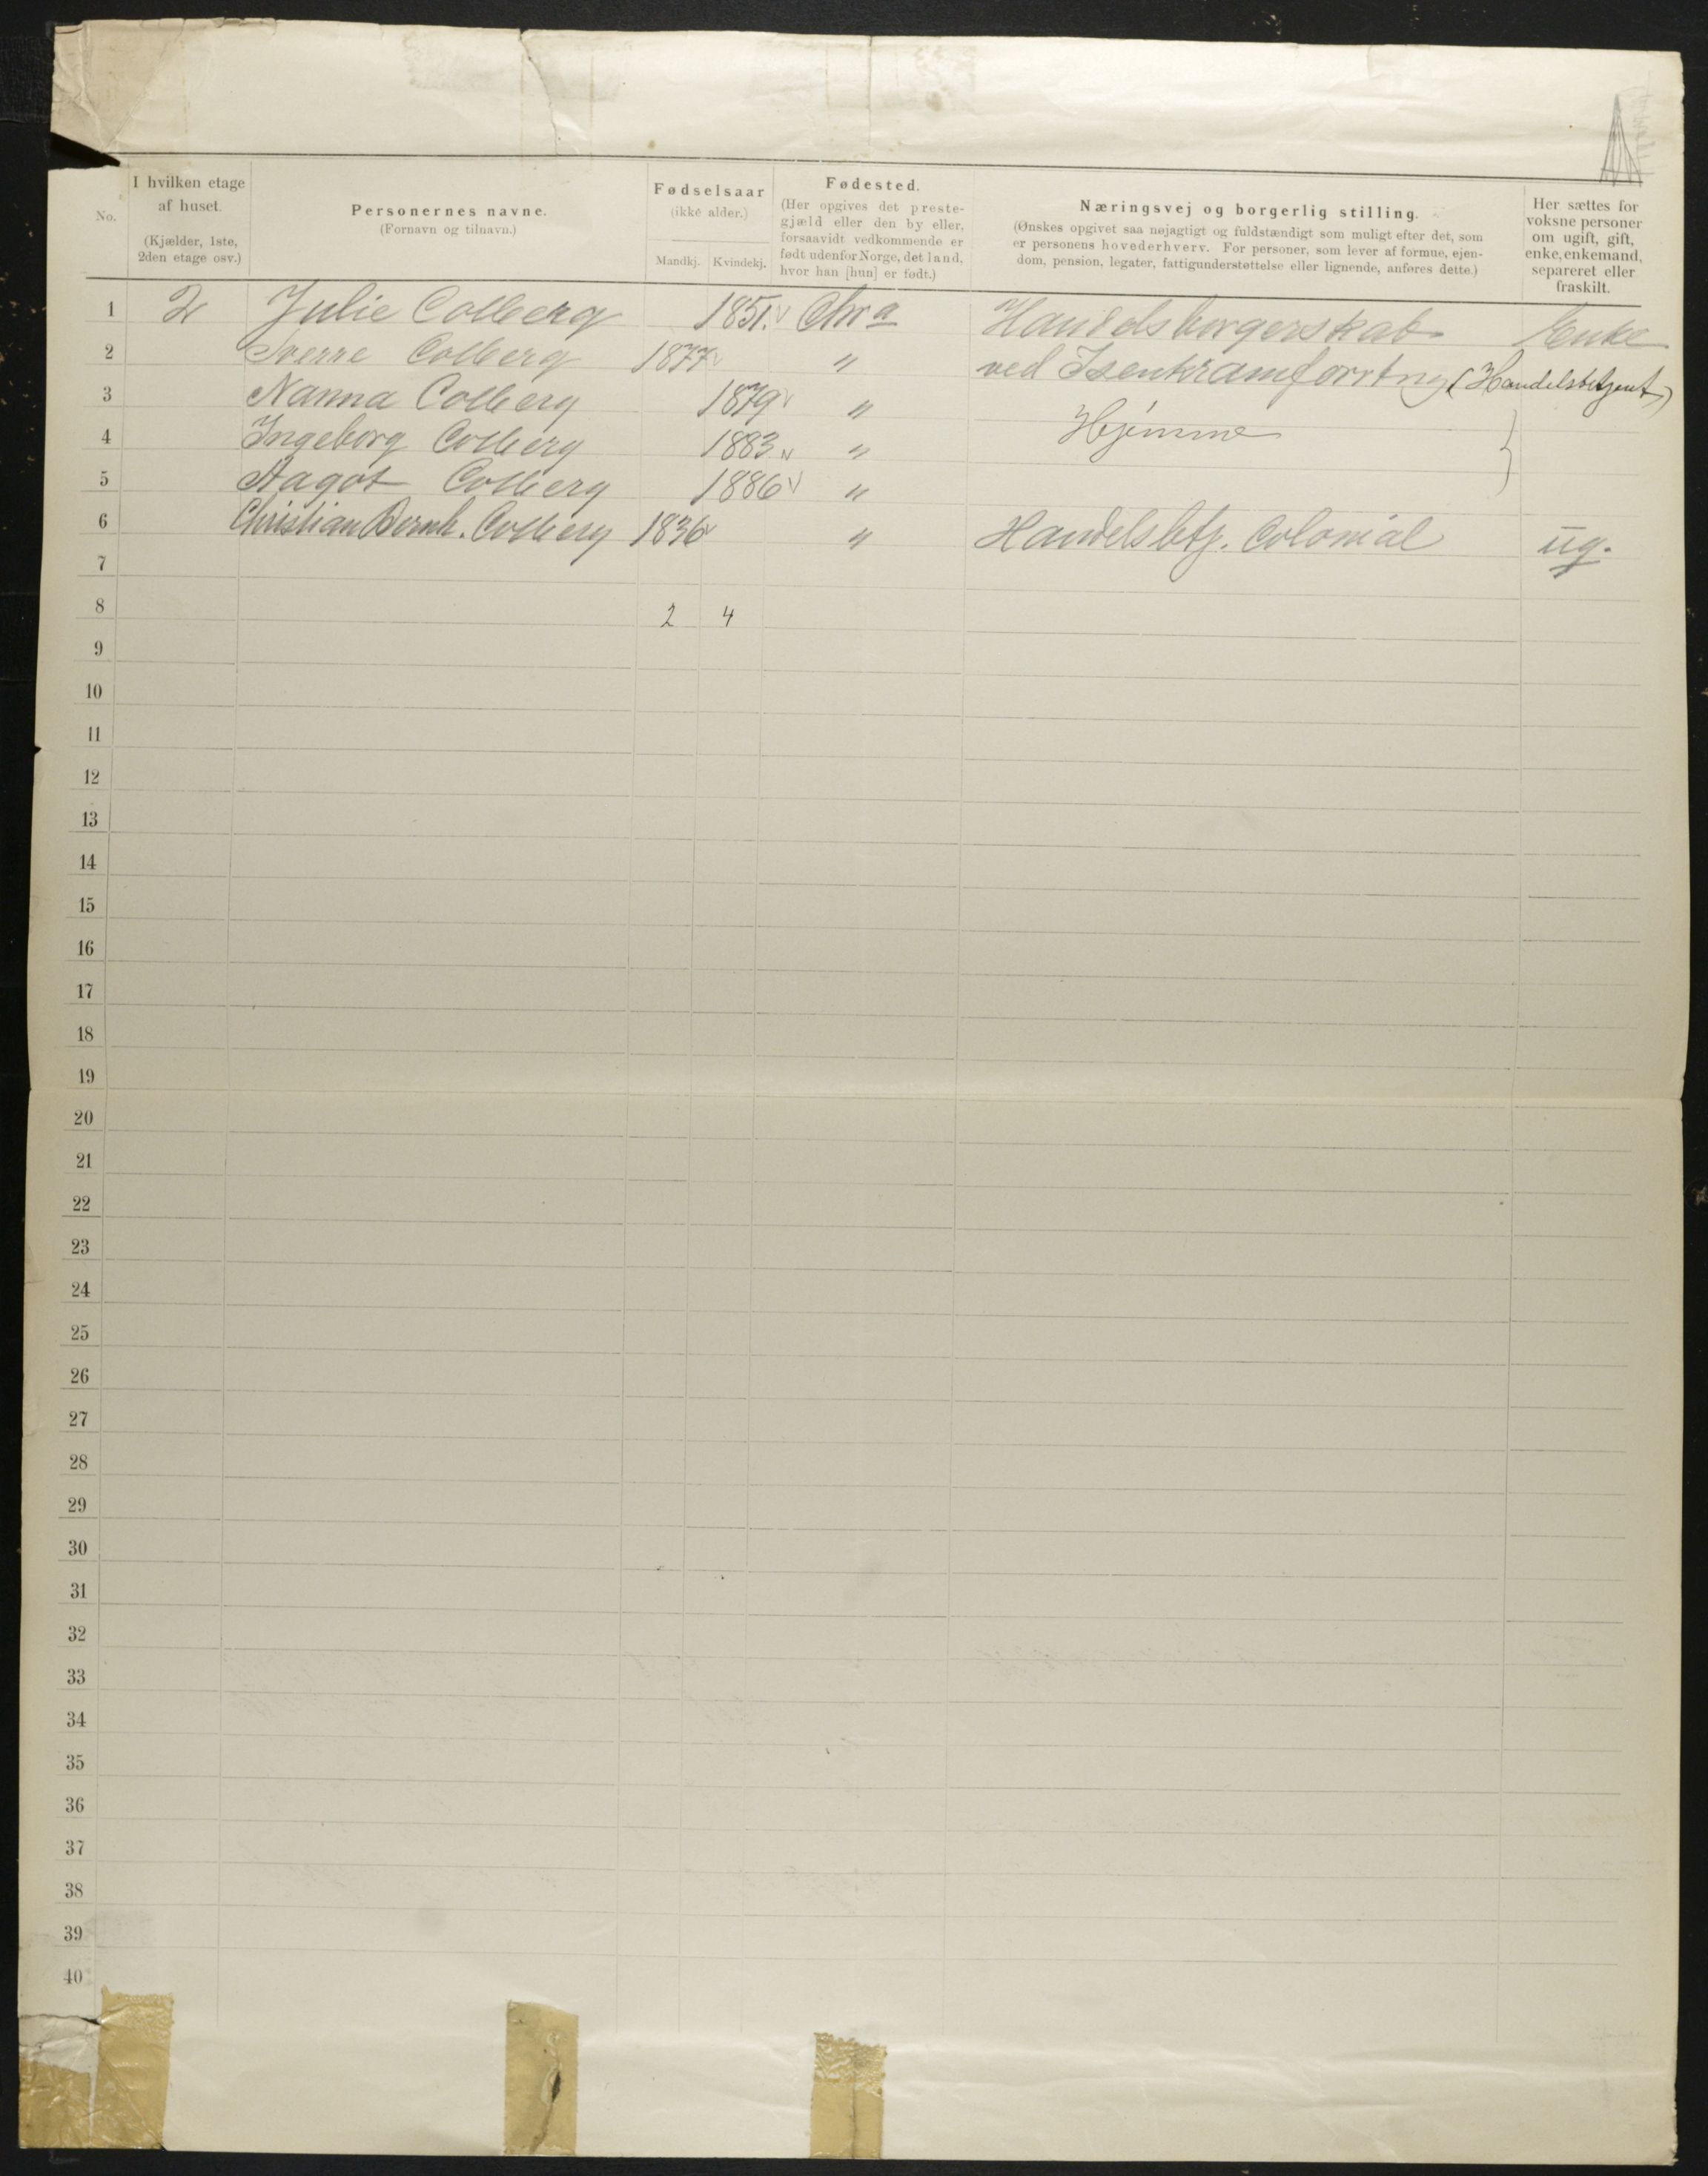 No.
I hvilken etage
af huset.
(Kjælder, 1ste,
2den etage osv.)
Personernes navne.
(Fornavn og tilnavn.)
Fødselsaar
(ikke alder.)
Mandkj. Kvindekj.
Fødested.
(Her opgives det preste-
gjæld eller den by eller,
forsaavidt vedkommende er
født udenfor Norge, det land,
hvor han [hun] er født.)
Næringsvej og borgerlig stilling.
(Ønskes opgivet saa nøjagtigt og fuldstændigt som muligt efter det, som
er personens hovederhverv. For personer, som lever af formue, ejen-
dom, pension, legater, fattigunderstøttelse eller lignende, anføres dette.)
Her sættes for
voksne personer
om ugift, gift,
enke, enkemand,
separeret eller
fraskilt.
1 2 Julie Colberg 1851. Chra Handelsborgerskab Enke
2 Sverre Colberg 1877 " ved Isenkramforrtng (Handelsbetjent)
3 Nanna Colberg 1879 "
4 Ingeborg Colberg 1883 " Hjemme }
5 Aagot Colberg 1886 "
6 Christian Bernh. Colberg 1836 " Handelsbetj. Colonial ug.
7
8 2 4
9
10
11
12
13
14
15
16
17
18
19
20
21
22
23
24
25
26
27
28
29
30
31
32
33
34
35
36
37
38
39
40